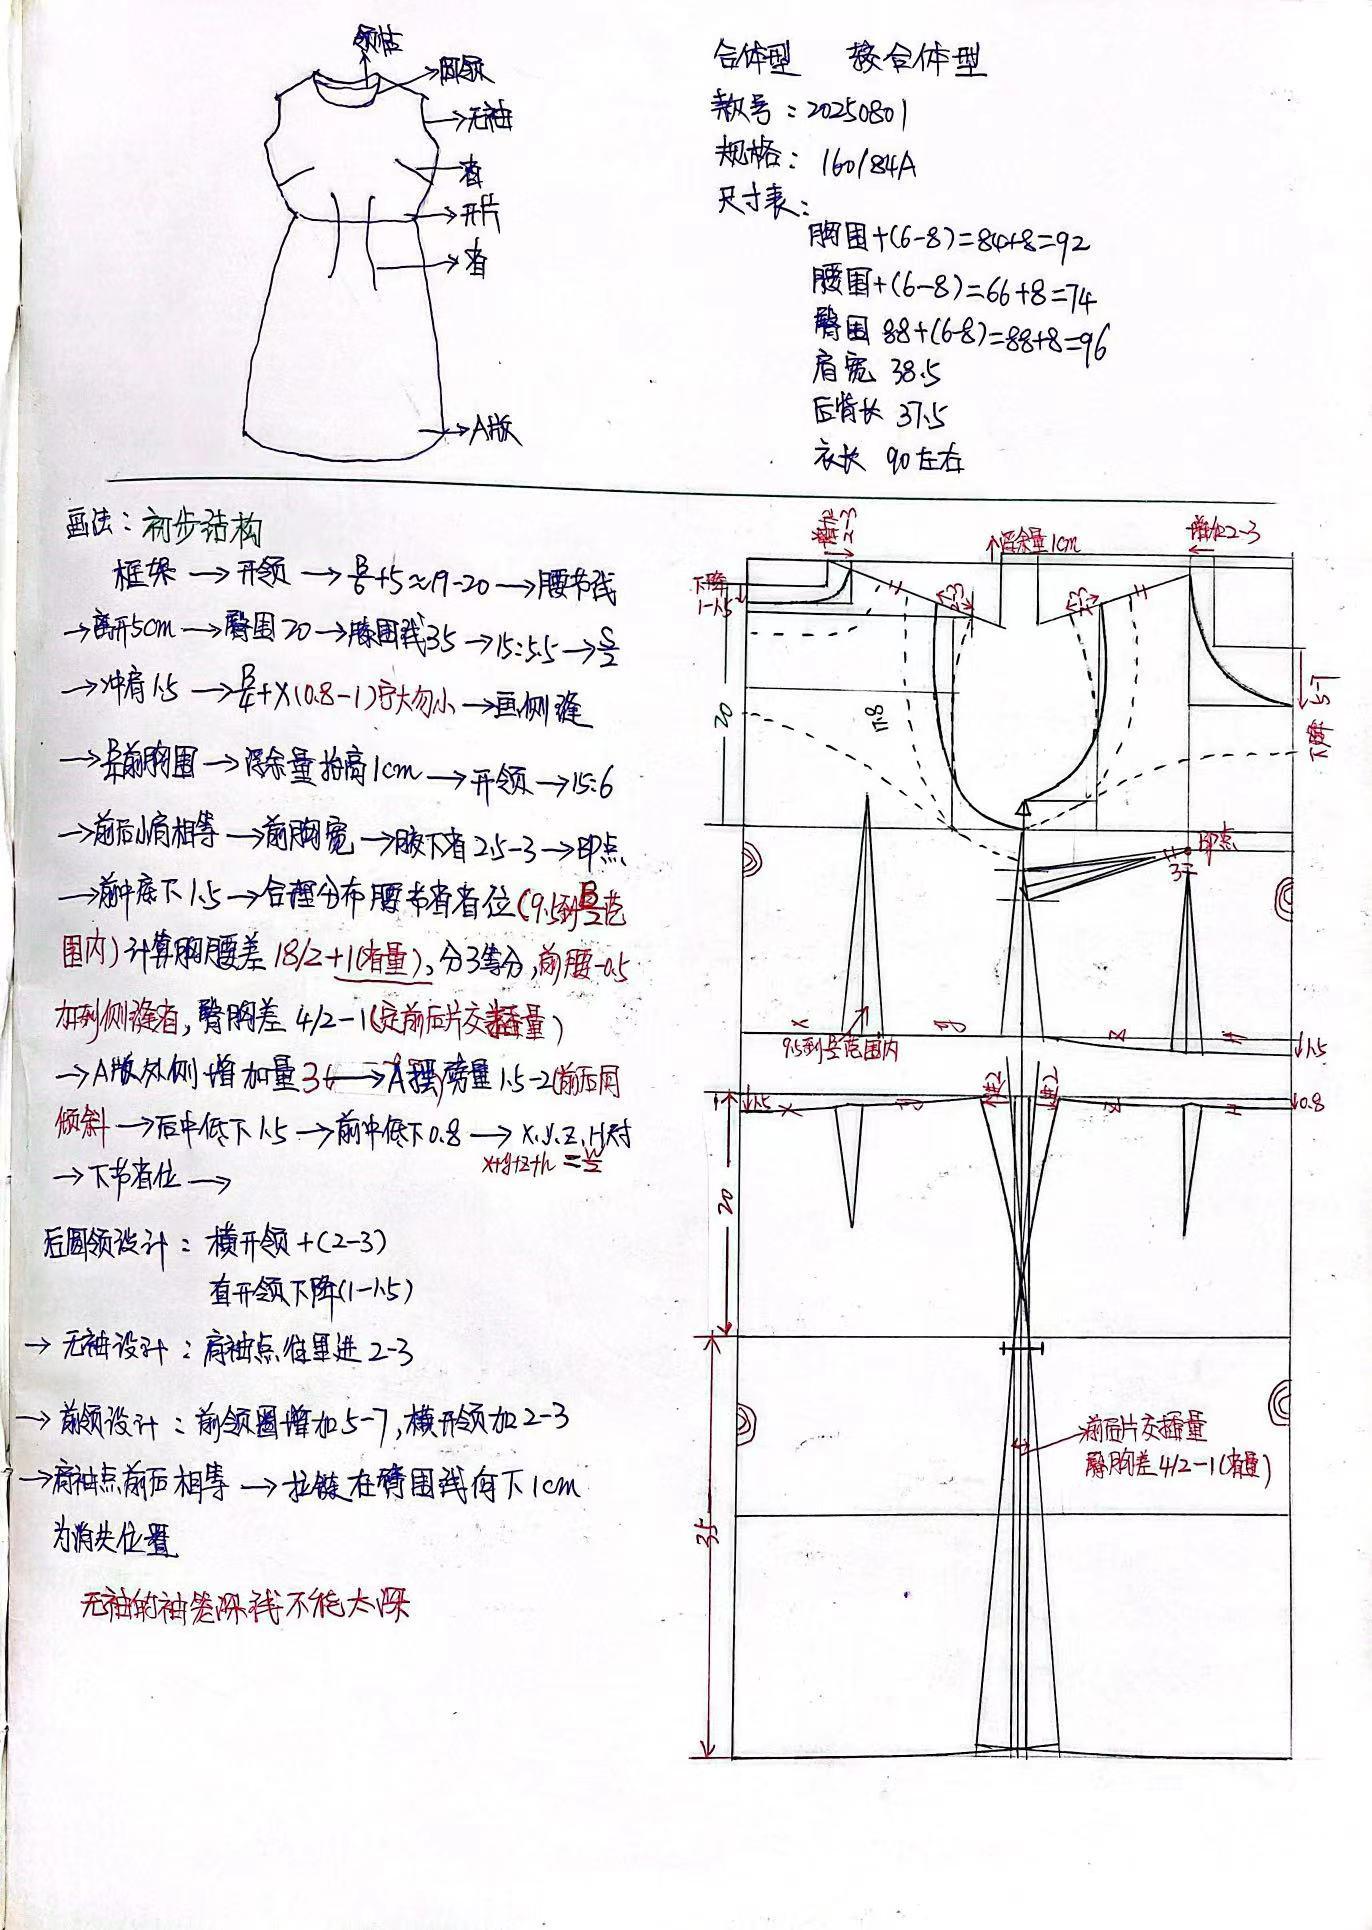 领贴
圆领
无袖
省
开片
省
A版
合体型 较合体型
款号：20250801
规格：160/84A
尺寸表：
胸围+(6-8)=84+8=92
腰围+(6-8)=66+8=74
臀围 88+(6-8)=88+8=96
肩宽 38.5
后背长 37.5
衣长 90左右
画法：初步结构
框架→开领→B/6+5≈19-20→腰节线
→离开5cm→臀围20→膝围线35→15:5.5→S/2
→冲肩1.5→B/4+X(0.8-1)宁大勿小→画侧缝
→前胸围→浮余量抬高1cm→开领→15:6
→前后小肩相等→前胸宽→腋下省2.5-3→BP点
→前中底下1.5→合理分布腰节省省位(9.5到B/2范
围内)计算胸腰差18/2+1(省量),分3等分,前腰-0.5
加到侧缝省,臀胸差4/2-1(定前后片交插量)
→A版外侧增加量3→A摆旁量1.5-2(前后同
倾斜→后中低下1.5→前中低下0.8→x.y.z.H对
x+y+z+h=W/2
→下节省位→
后圆领设计：横开领+(2-3)
直开领下降(1-1.5)
→无袖设计：肩袖点往里进2-3
→前领设计：前领圈增加5-7,横开领加2-3
→肩袖点前后相等→拉链在臀围线向下1cm
为消失位置
无袖的袖笼深线不能太深
2-3
浮余量1cm
增加2-3
下降
1-1.5
2-3
2-3
下降5-7
20
17.8
BP点
3
x
y
z
H
9.5到B/2范围内
↓1.5
↓1.5
x
y
进2
进2
z
H
↓0.8
20
35
前后片交插量
臀胸差4/2-1(省量)